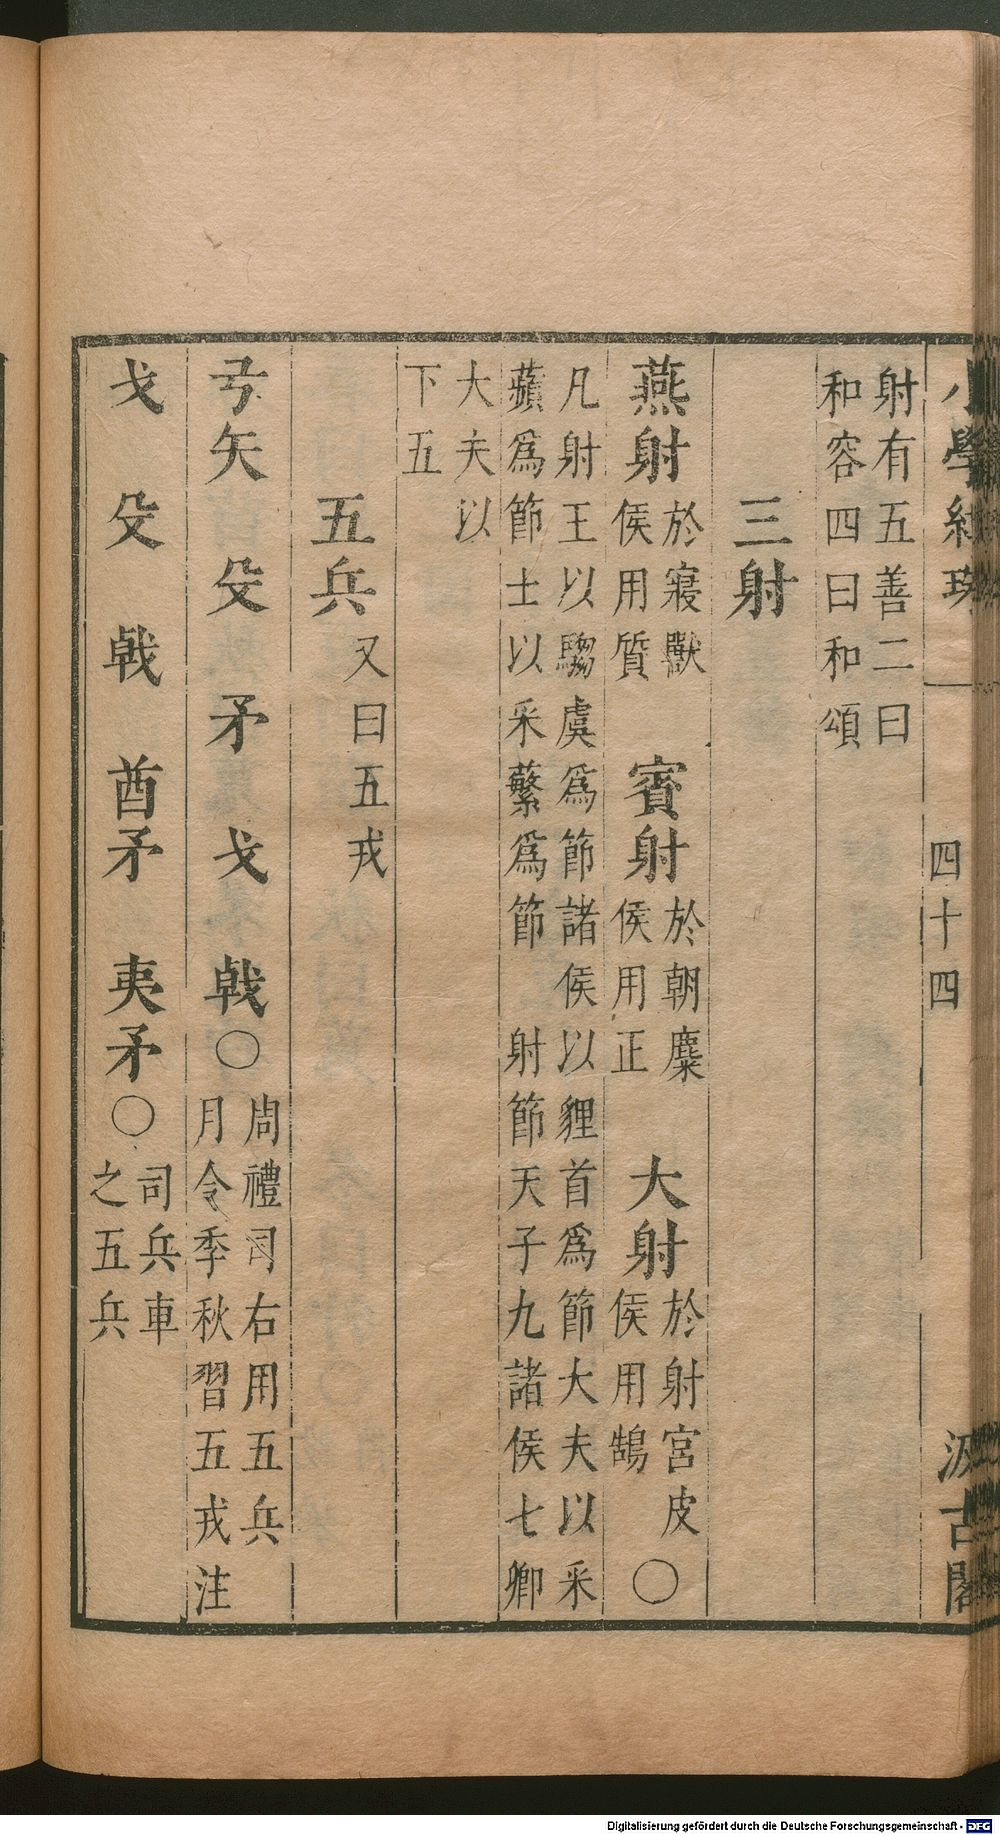 小學紺珠 四十四 汲古閣
射有五善二曰
和容四曰和頌
三射
燕射 於寢獸
侯用質 賓射 於朝麋
侯用正 大射 於射宮皮
侯用鵠 ○
凡射王以騶虞為節諸侯以貍首為節大夫以采
蘋爲節士以采蘩爲節 射節天子九諸侯七卿
大夫以
下五
五兵 又曰五戎
弓矢 殳 矛 戈 戟○ 周禮司右用五兵
月令季秋習五戎注
戈 殳 戟 酋矛 夷矛○ 司兵車
之五兵
Digitalisierung gefördert durch die Deutsche Forschungsgemeinschaft - DFG